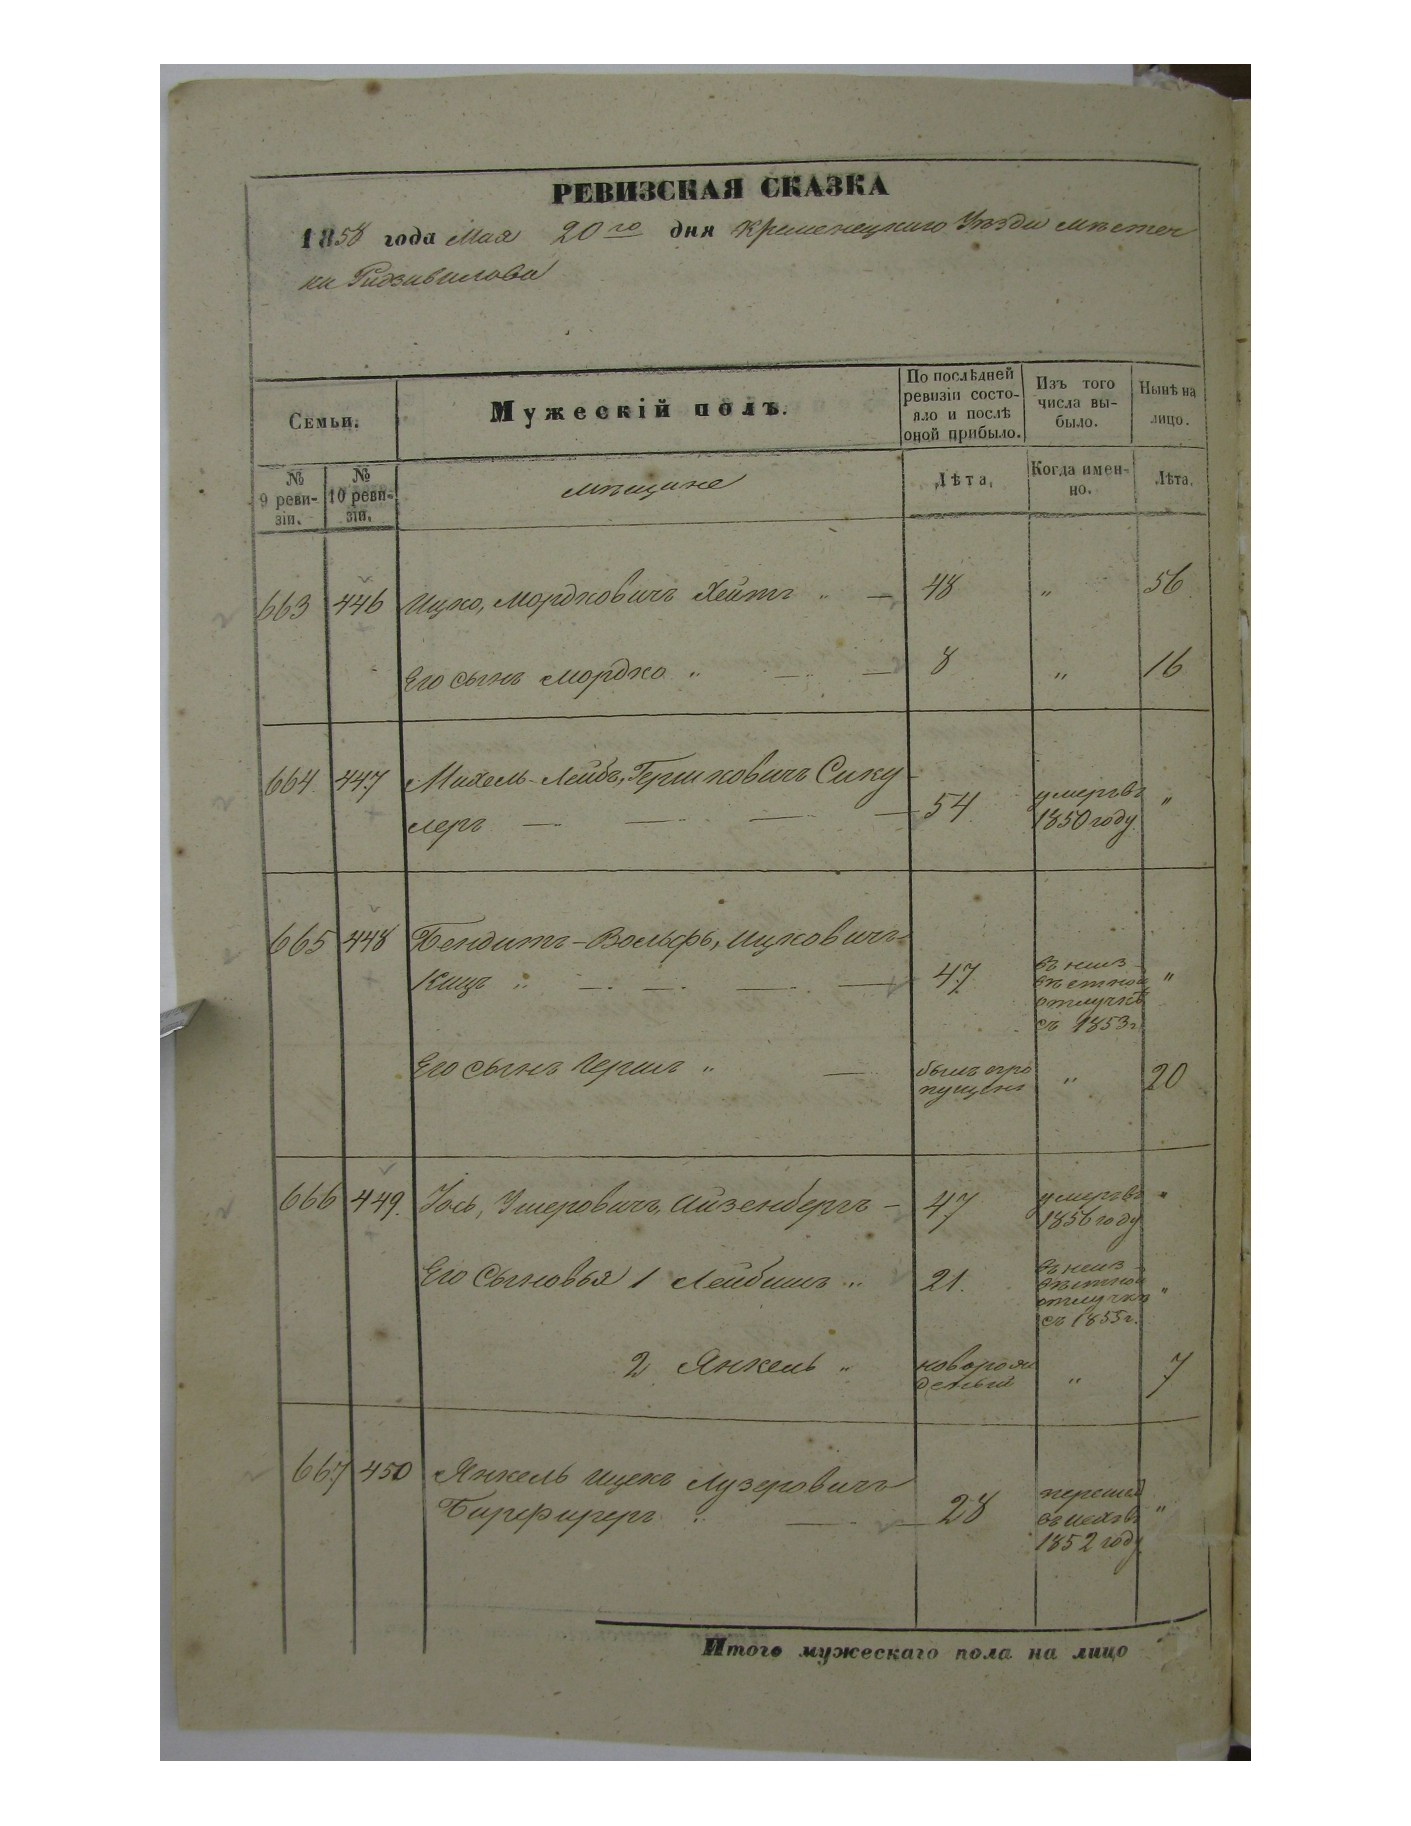 РЕВИЗСКАЯ СКАЗКА
1858 года Мая 20го дня Кременецкаго Уѣзда мѣстеч
ка Радзивилова
Семьи.
Мужескій полъ.
По послѣдней
ревизіи состо-
яло и послѣ
оной прибыло.
Изъ того
числа вы-
было.
Нынѣ на
лицо.
№
9 реви-
зіи.
№
10 реви-
зіи.
мѣщане
Лѣта.
Когда имен-
но.
Лѣта.
663 446 Ицко, Мордковичъ Хейтъ „ — 48 „ 56
Его сынъ Мордко „ — — 8 „ 16
664 447 Михель-Лейбъ, Гершковичъ Сику-
леръ — — — — 54 умеръ въ „
1850 году
665 448 Бендитъ-Вольфъ, Ицковичъ
Кицъ „ — — — — 47 въ неиз-
вѣстной „
отлучкѣ
съ 1853 г.
Его сынъ Гершъ „ — былъ про
пущенъ „ 20
666 449. Іось, Ушеровичъ, Айзенбергъ — 47 умеръ въ „
1856 году
Его Сыновья 1 Лейбишъ „ 21. въ неиз-
вѣстной
отлучкѣ „
съ 1855 г.
2 Янкель „ новорож
денный „ 7
667 450 Янкель Ицекъ Лузеровичъ
„ — — 28 перешел
въ „
1852 году
Итого мужескаго пола на лицо